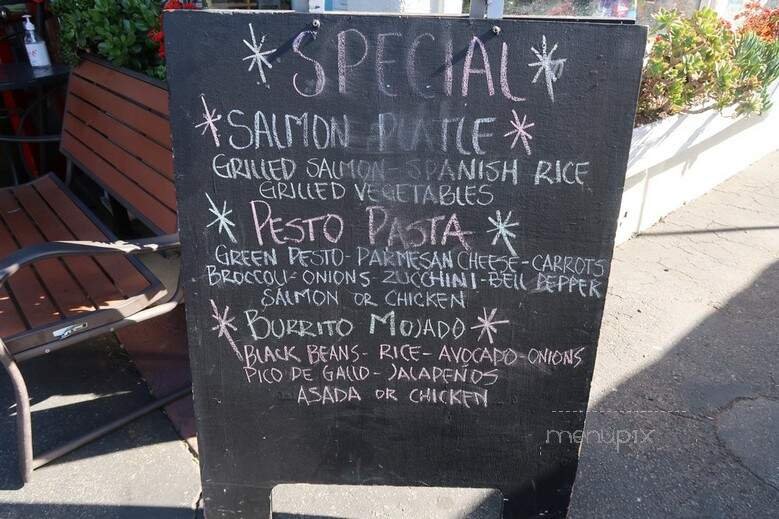 SPECIAL
SALMON PLATLE
GRILLED SALMON - SPANISH RICE
GRILLED VEGETABLES
PESTO PASTA
GREEN PESTO - PARMESAN CHEESE - CARROTS
BROCCOLI - ONIONS ZUCCHINI - BELL PEPPER
SALMON OR CHICKEN
BURRITO MOJADO
BLACK BEANS - RICE - AVOCADO - ONIONS
PICO DE GALLO - JALAPEÑOS
ASADA OR CHICKEN
menupix